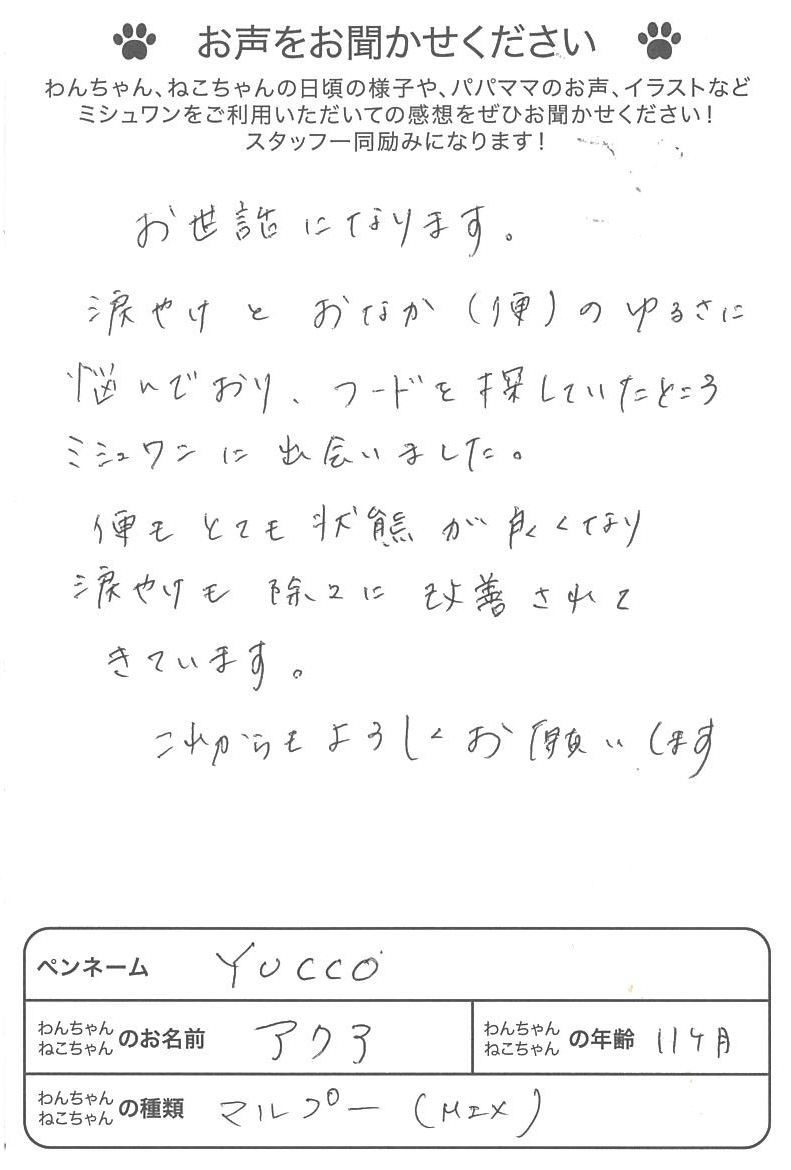 お声をお聞かせください
わんちゃん、ねこちゃんの日頃の様子や、パパママのお声、イラストなど
ミシュワンをご利用いただいての感想をぜひお聞かせください！
スタッフ一同励みになります！
お世話になります。
涙やけとおなか(便)のゆるさに
悩んでおり、フードを探していたところ
ミシュワンに出会いました。
便もとても状態が良くなり
涙やけも除々に改善されて
きています。
これからもよろしくお願いします
ペンネーム YUCCO
わんちゃん ねこちゃん のお名前 アクア
わんちゃん ねこちゃん の年齢 11ヶ月
わんちゃん ねこちゃん の種類 マルプー (MIX)